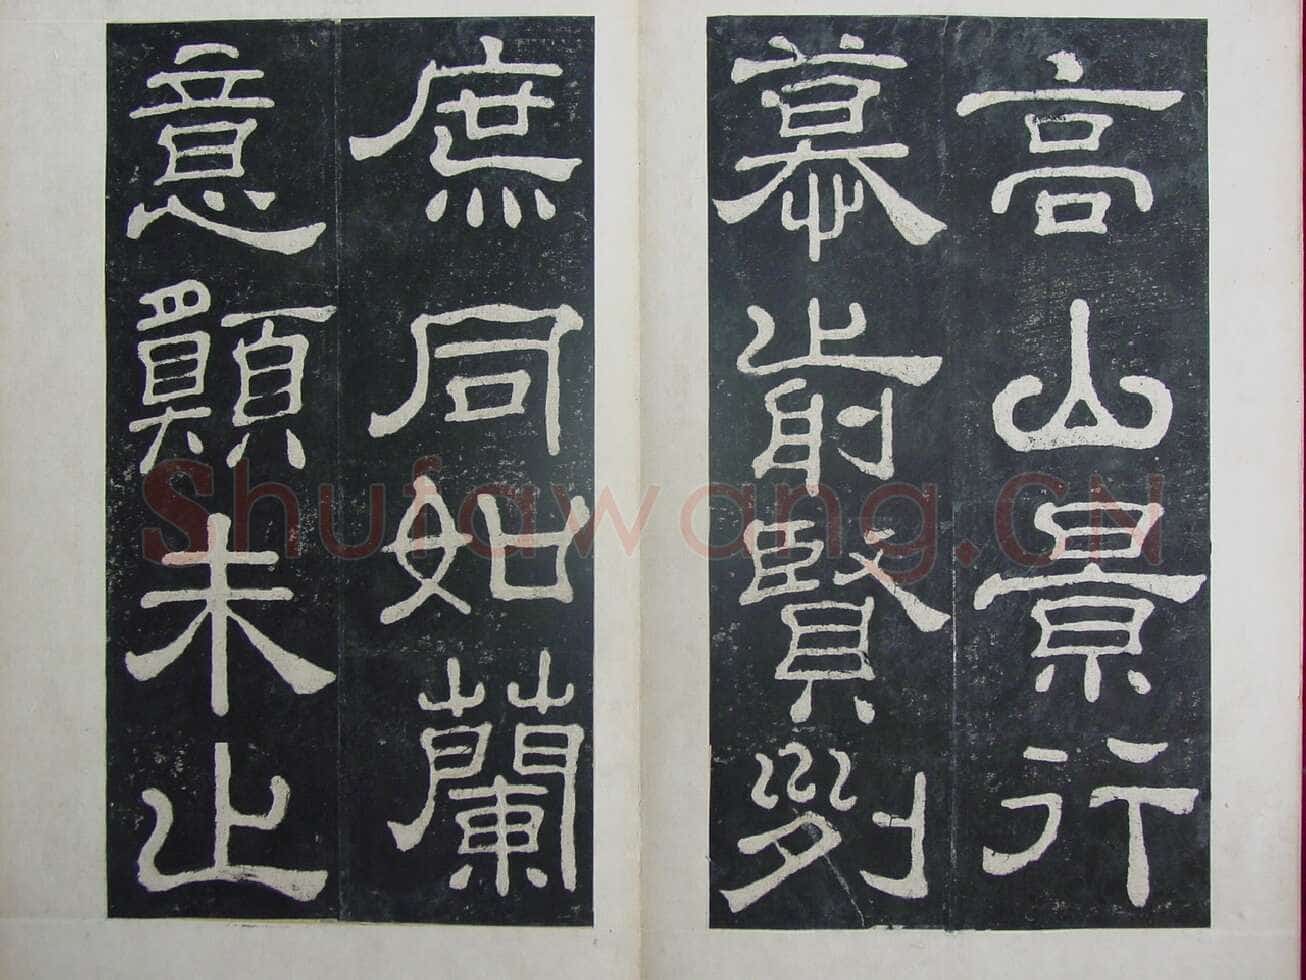 高山景行
慕前賢列
庶同如蘭
意願未止
Shufawang.CN